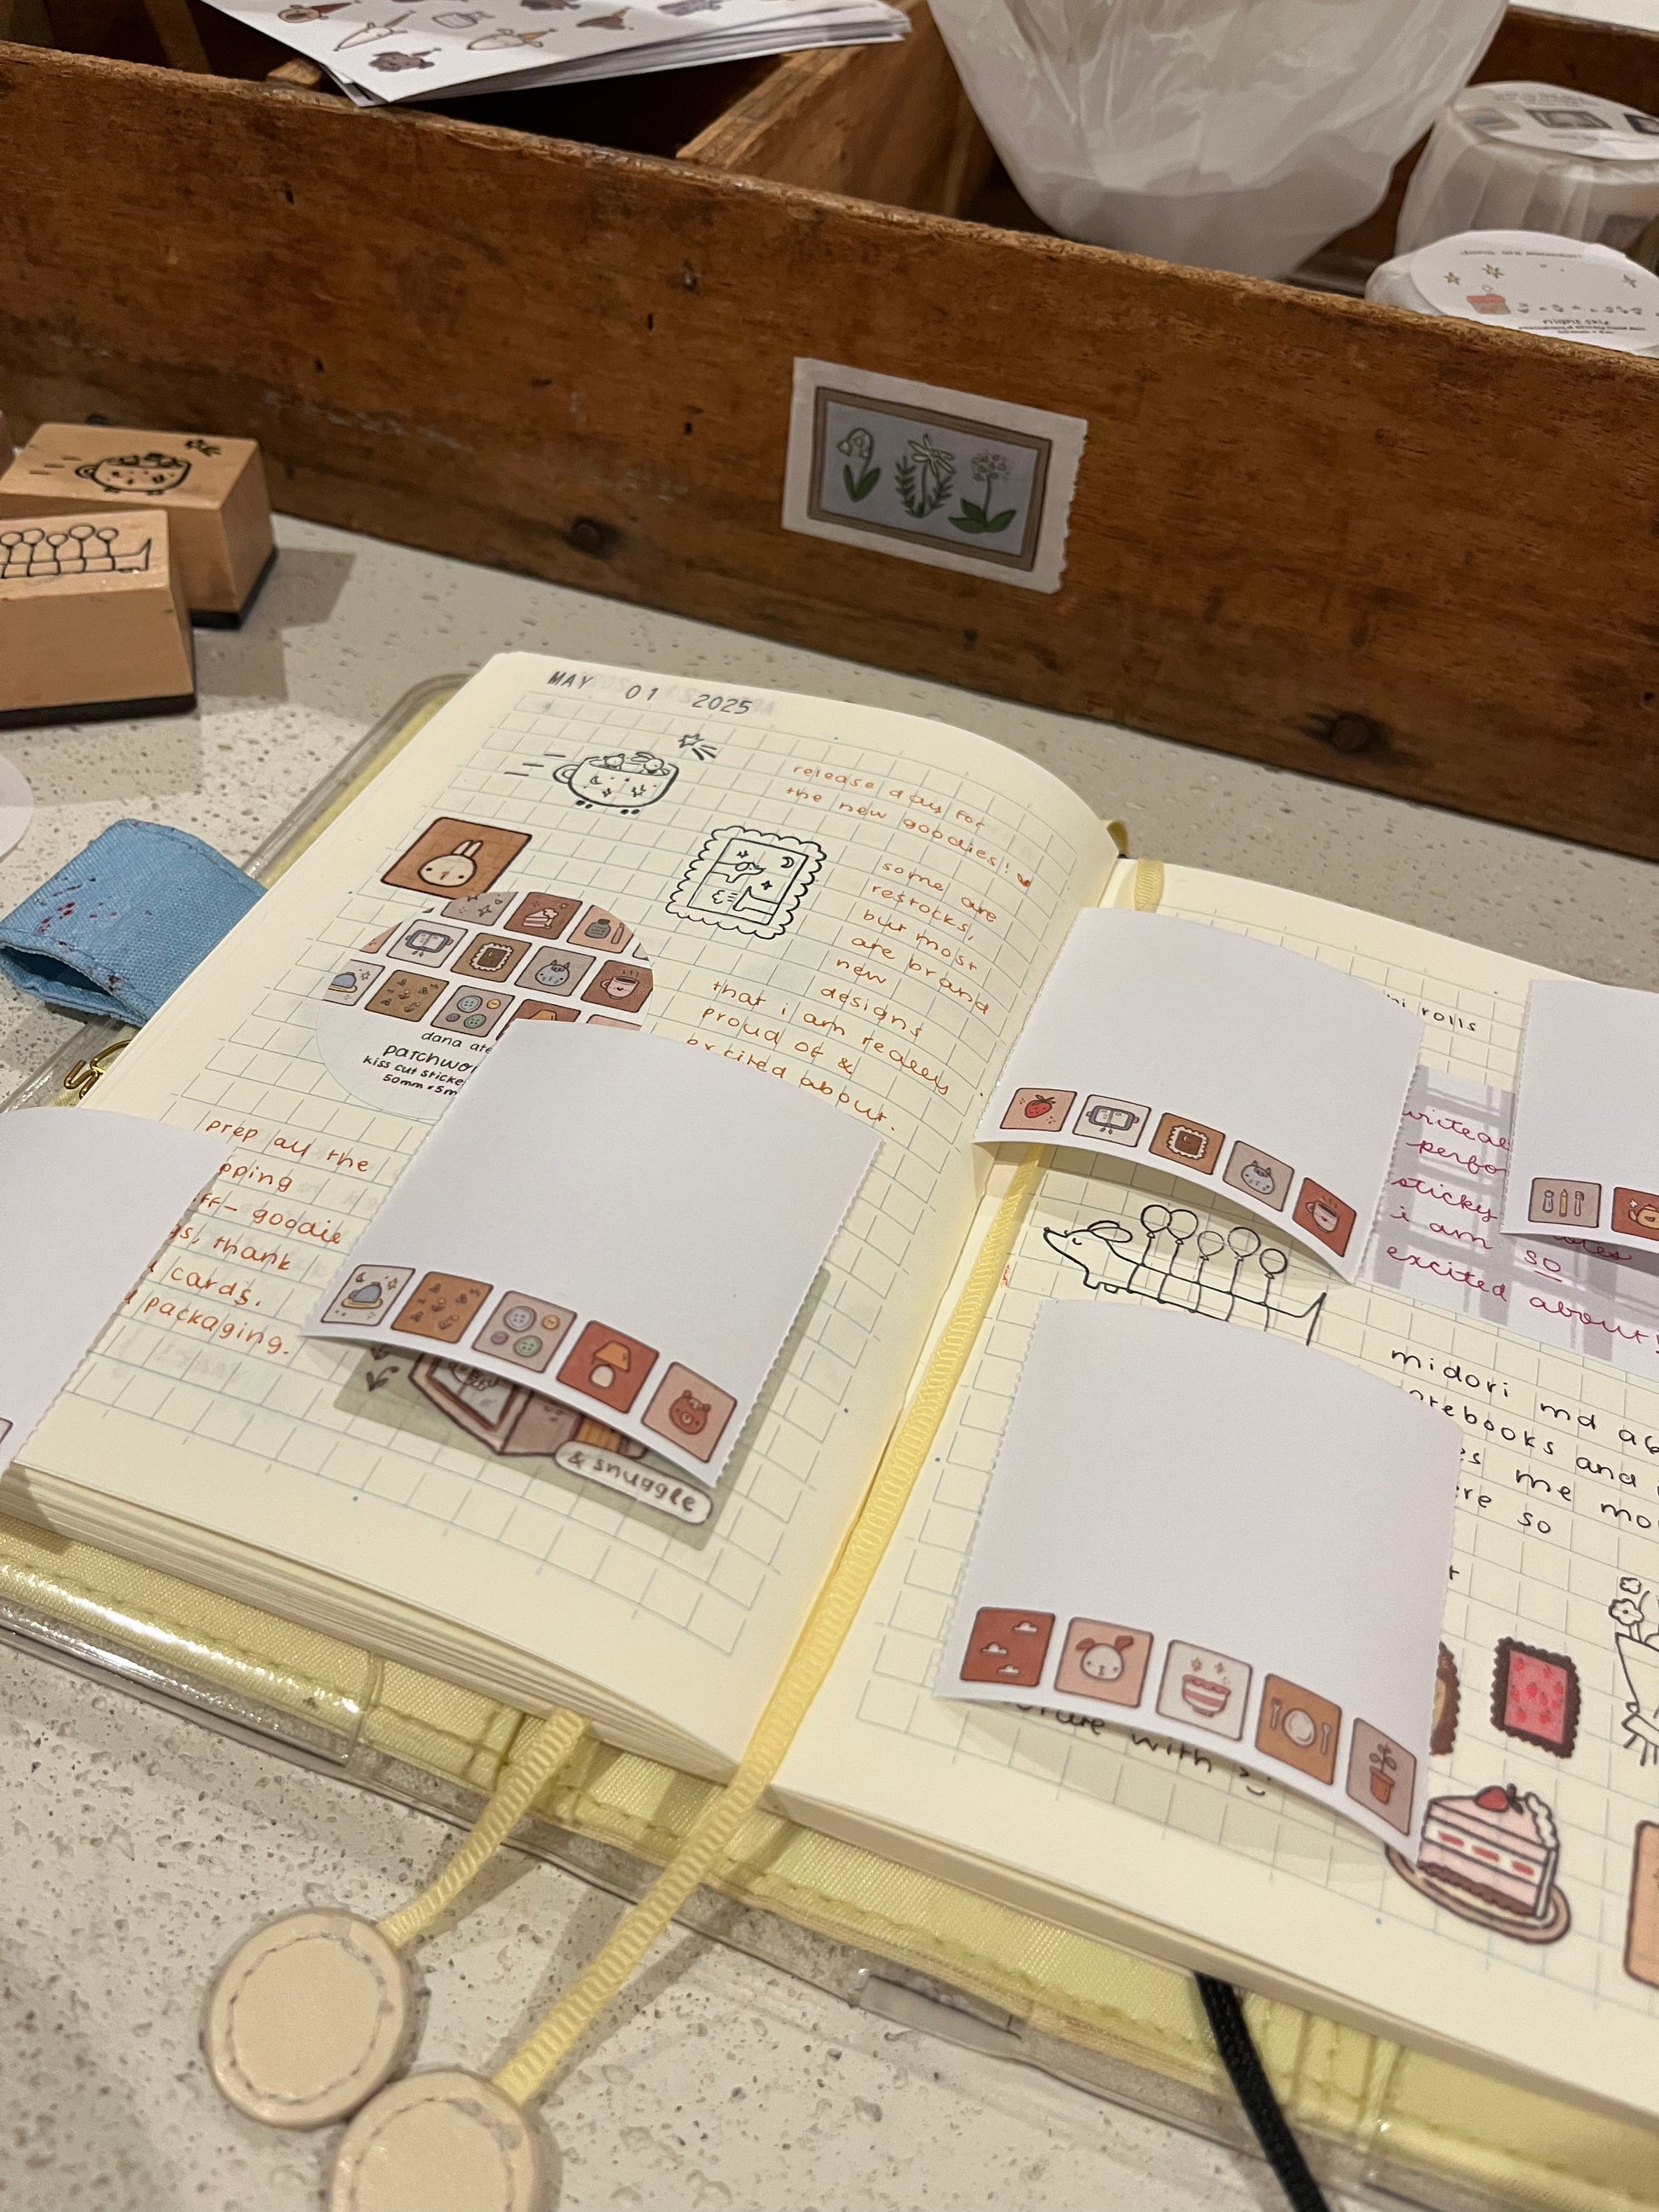 MAY 01 2025
release day for
the new goodies!
some are
restocks,
but most
are brand
new
designs
that i am really
proud of &
excited about.
dana
patchwo
kiss cut sticke
50mm x 5m
prep all the
pping
ff- goodie
gs, thank
cards.
packaging.
& snuggle
rolls
writeab
perfo
sticky notes
i am so
excited about!
midori md a6
otebooks and
es me mo
ere so
with :)